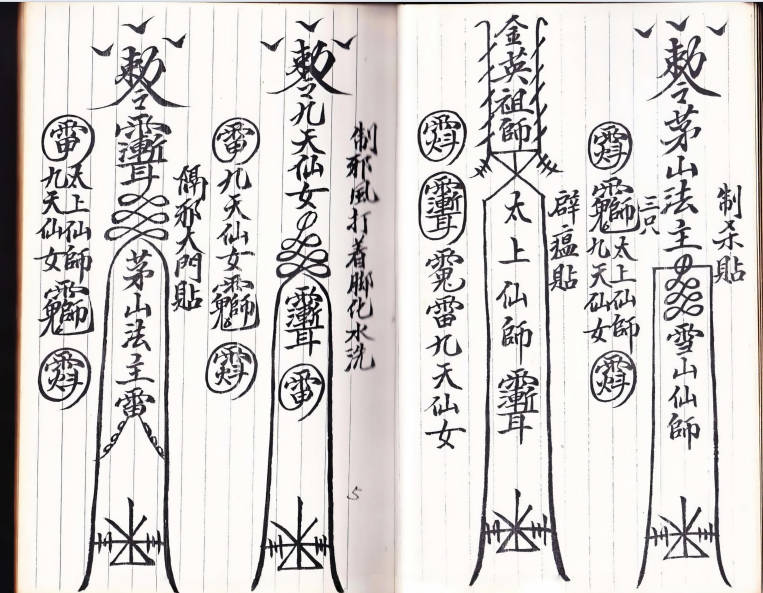 制杀貼
敕令茅山法主
雪山仙師
三只
太上仙師
九天仙女
辟瘟貼
金英祖師
太上仙師
雷九天仙女
制邪風打着脚化水洗
敕令九天仙女
雷
雷
九天仙女
隔邪大門貼
敕令
茅山法主雷
雷
太上仙師
九天仙女
5